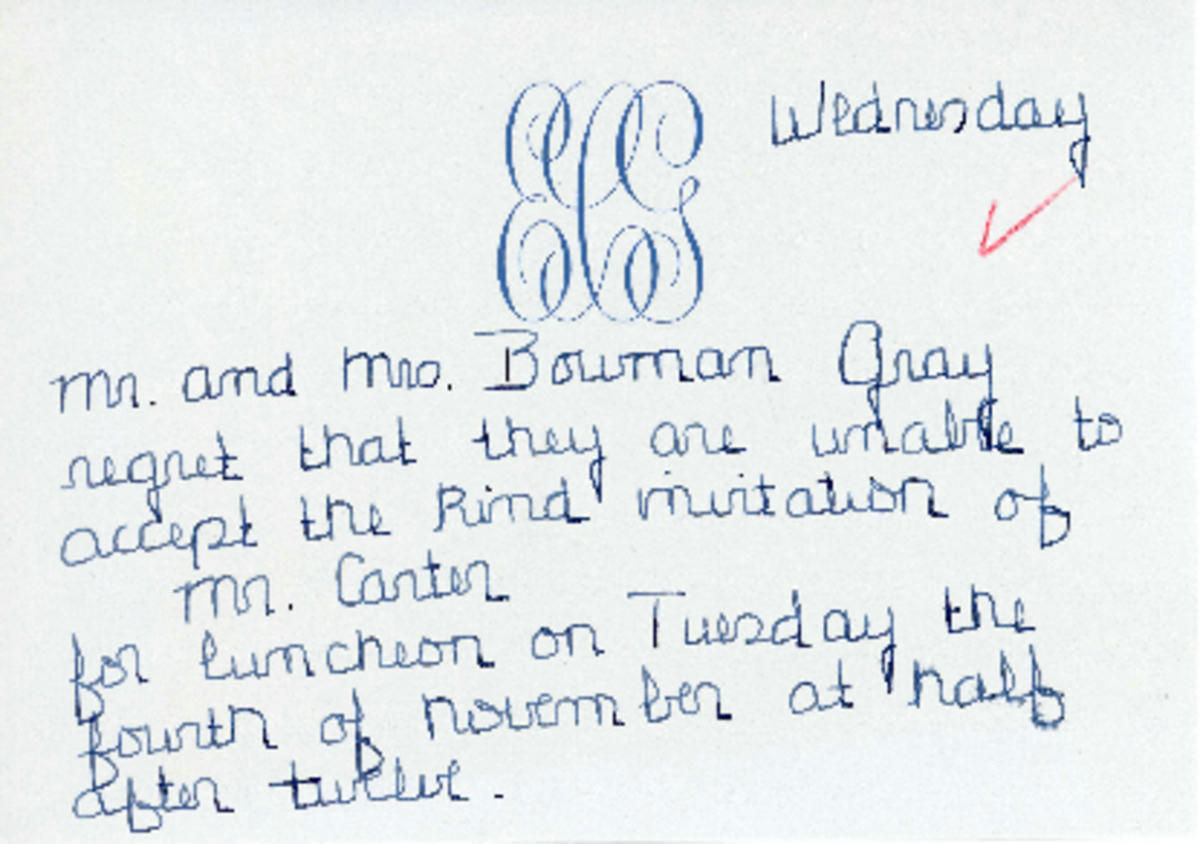 Wednesday
Mr. and Mrs. Bowman Gray
regret that they are unable to
accept the kind invitation of
Mr. Carter
for luncheon on Tuesday the
fourth of November at half
after twelve.